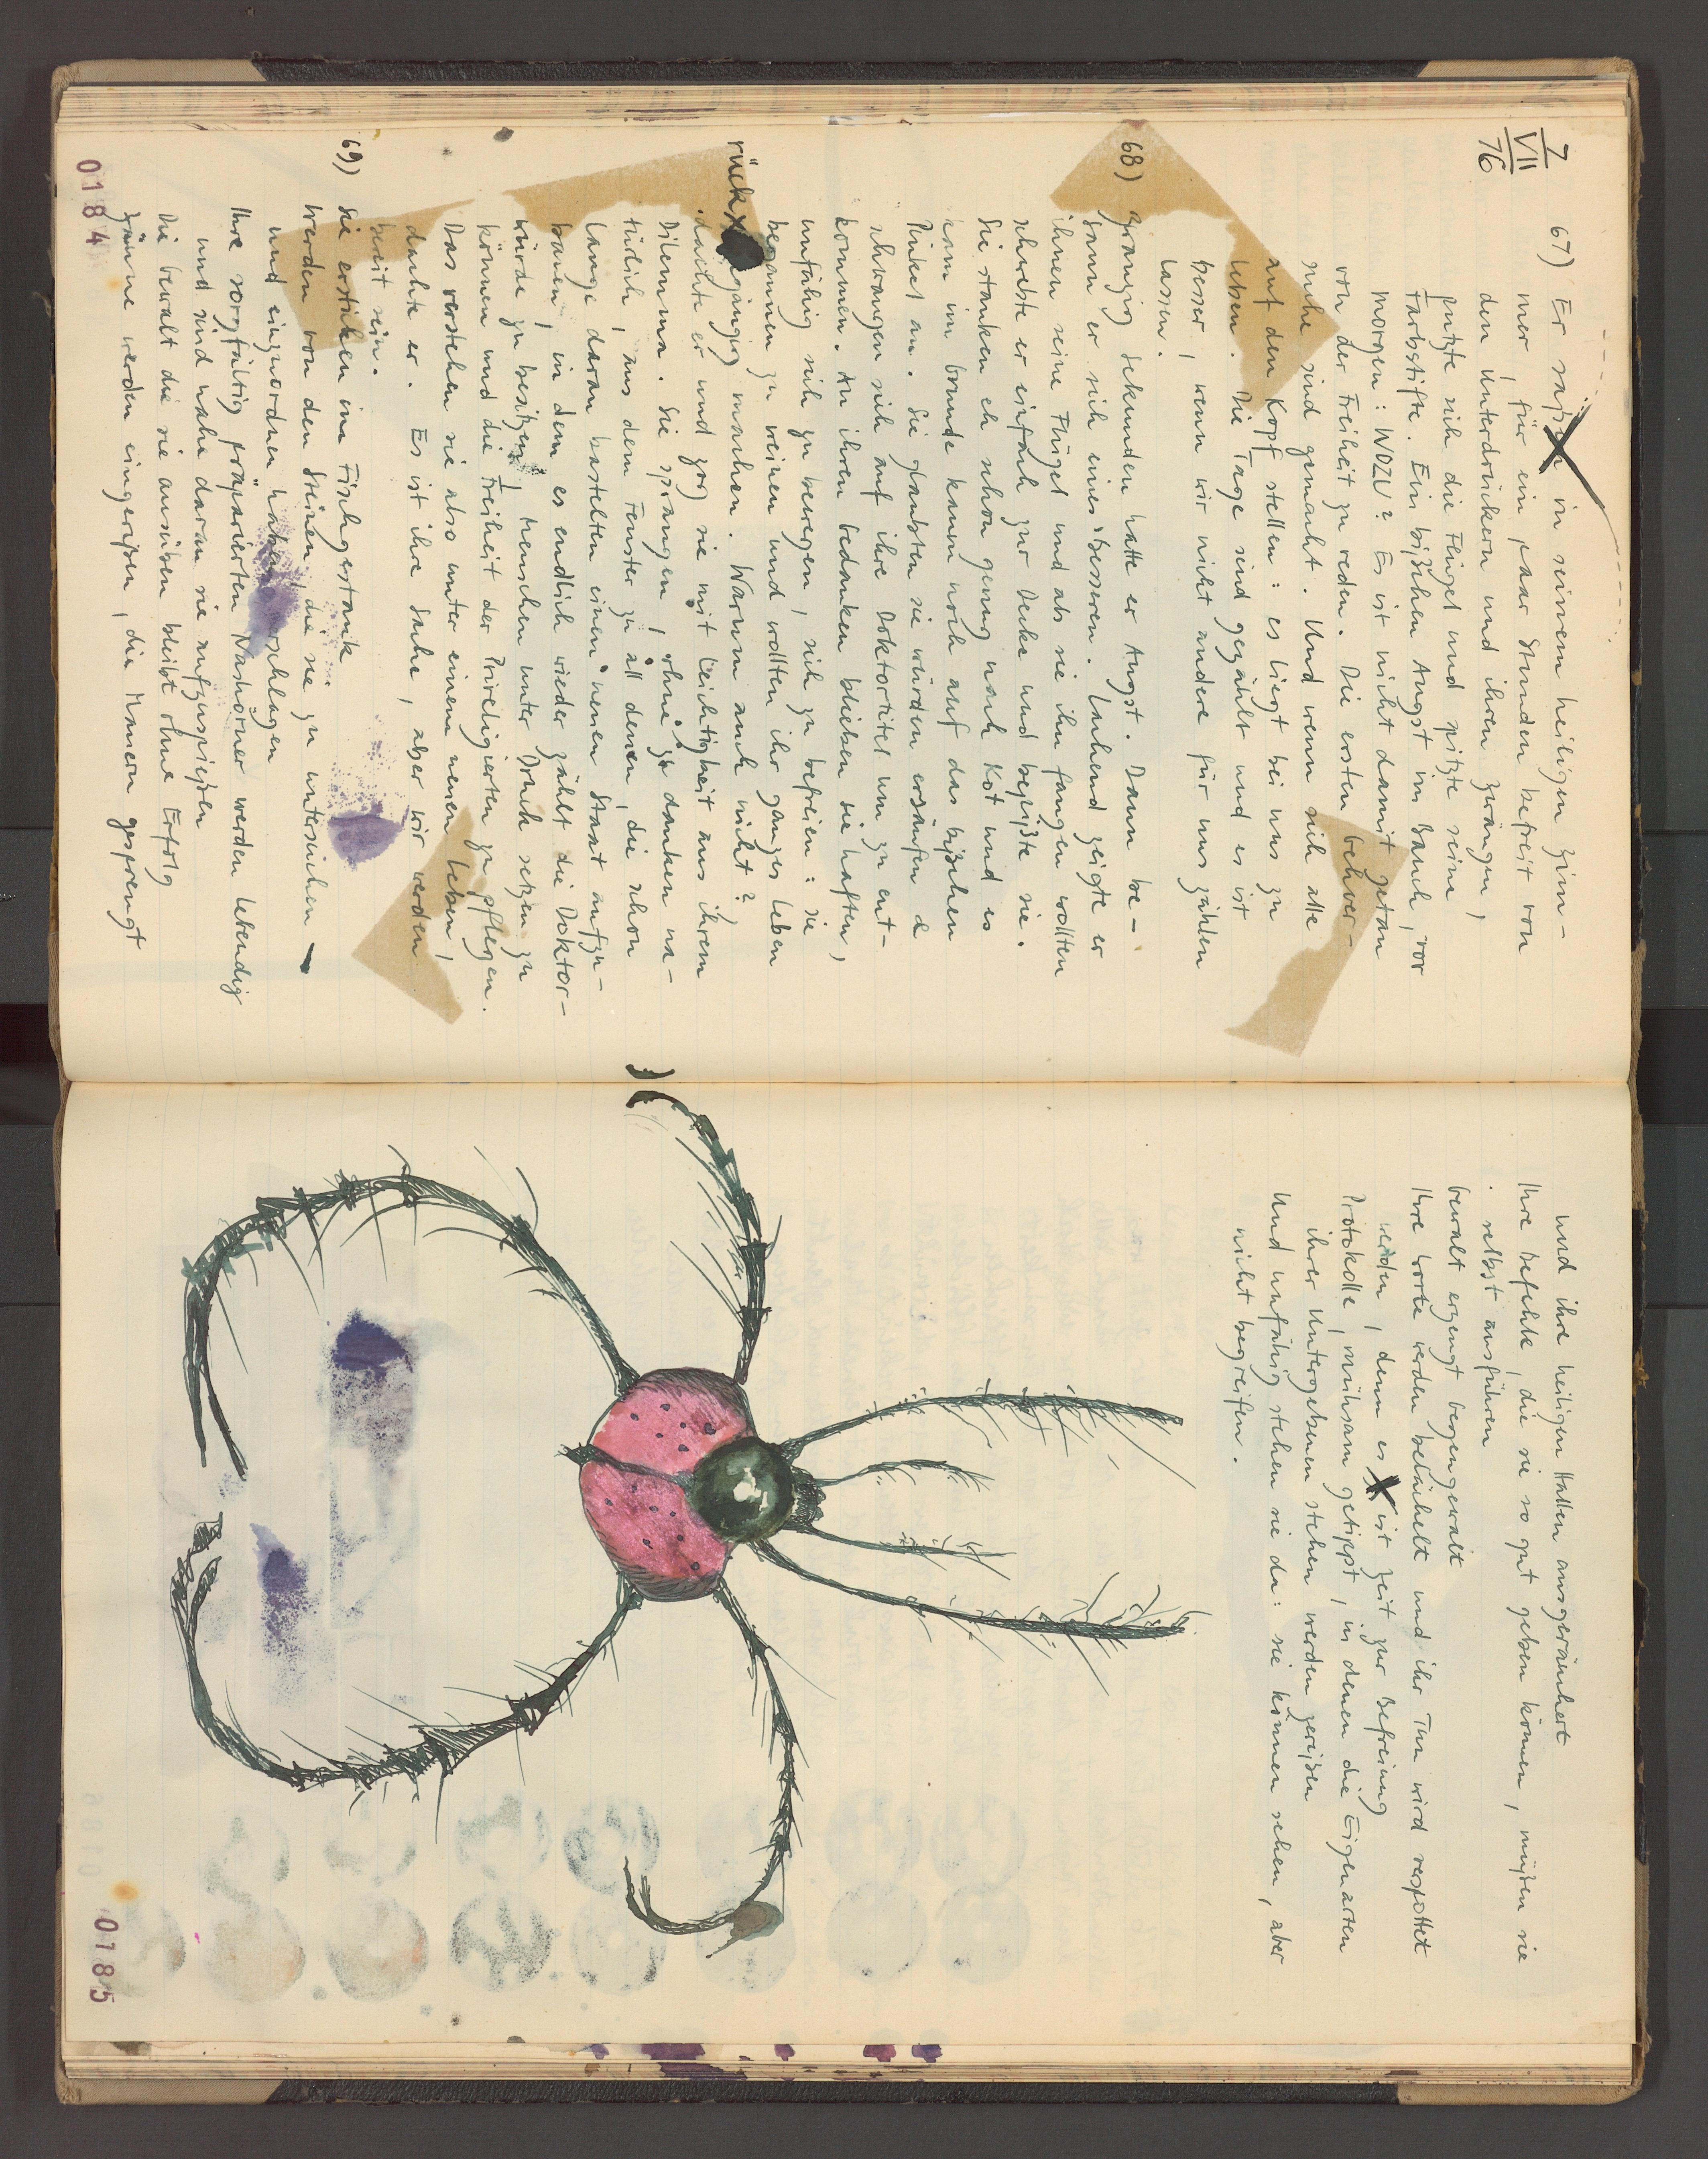 7
VII
76
67) Er saß in seinem heiligen Zim-
mer, für ein paar Stunden befreit von
den Unterdrückern und ihren Zwängen,
putzte sich die Flügel und spitzte seine
Farbstifte. Ein bißchen Angst im Bauch, vor
morgen: WOZU? Es ist nicht damit getan
von der Freiheit zu reden. Die ersten
suche sind gemacht. Und wenn sich alle
auf den Kopf stellen: es liegt bei uns zu
leben. Die Tage sind gezählt und es ist
besser, wenn wir nicht andere für uns zählen
lassen.
68) Zwanzig Sekunden hatte er Angst. Dann be-
sann er sich eines Besseren. Lachend zeigte er
ihnen seine Flügel und als sie ihn fangen wollten
schwebte er einfach zur Decke und bepißte sie.
Sie stanken eh schon genug nach Kot und es
kam im Grunde kaum noch auf das bißchen
Pinkel an. Sie glaubten sie würden ersaufen &
schwangen sich auf ihre Doktortitel um zu ent-
kommen. An ihren Gedanken blieben sie haften,
unfähig sich zu bewegen, sich zu befreien: sie
begannen zu weinen und wollten ihr ganzes Leben
rück gängig machen. Warum auch nicht?
dachte er und zog sie mit Leichtigkeit aus ihrem
Dilemma. Sie sprangen, ohne zu danken na-
türlich, aus dem Fenster zu all denen, die schon
lange daran bastelten einen neuen Staat aufzu-
bauen, in dem es endlich wieder zählt die Doktor-
würde zu besitzen, Menschen unter Druck setzen zu
können und die Freiheit der Privilegierten zu pflegen.
Das verstehen sie also unter einem neuen Leben,
dachte er. Es ist ihre Sache, aber wir werden
bereit sein.
69) Sie ersticken im Fischgestank
werden von den Steinen die sie zu untersuchen
und einzuordnen haben erschlagen
Ihre sorgfältig präparierten Nashörner werden lebendig
und sind nahe daran sie aufzuspießen
Die Gewalt die sie ausüben bleibt ohne Erfolg
Zäune werden eingerißen, die Mauern gesprengt
0184
und ihre heiligen Hallen ausgeräuchert
Ihre Befehle, die sie so gut geben können, müßen sie
selbst ausführen
Gewalt erzeugt Gegengewalt
Ihre Worte werden belächelt und ihr Tun wird verspottet
werden, denn es ist Zeit zur Befreiung
Protokolle, mühsam getippt, in denen die Eigenarten
ihrer Untergebenen stehen werden zerrißen
Und unfähig stehen sie da: sie können sehen, aber
nicht begreifen.
0185